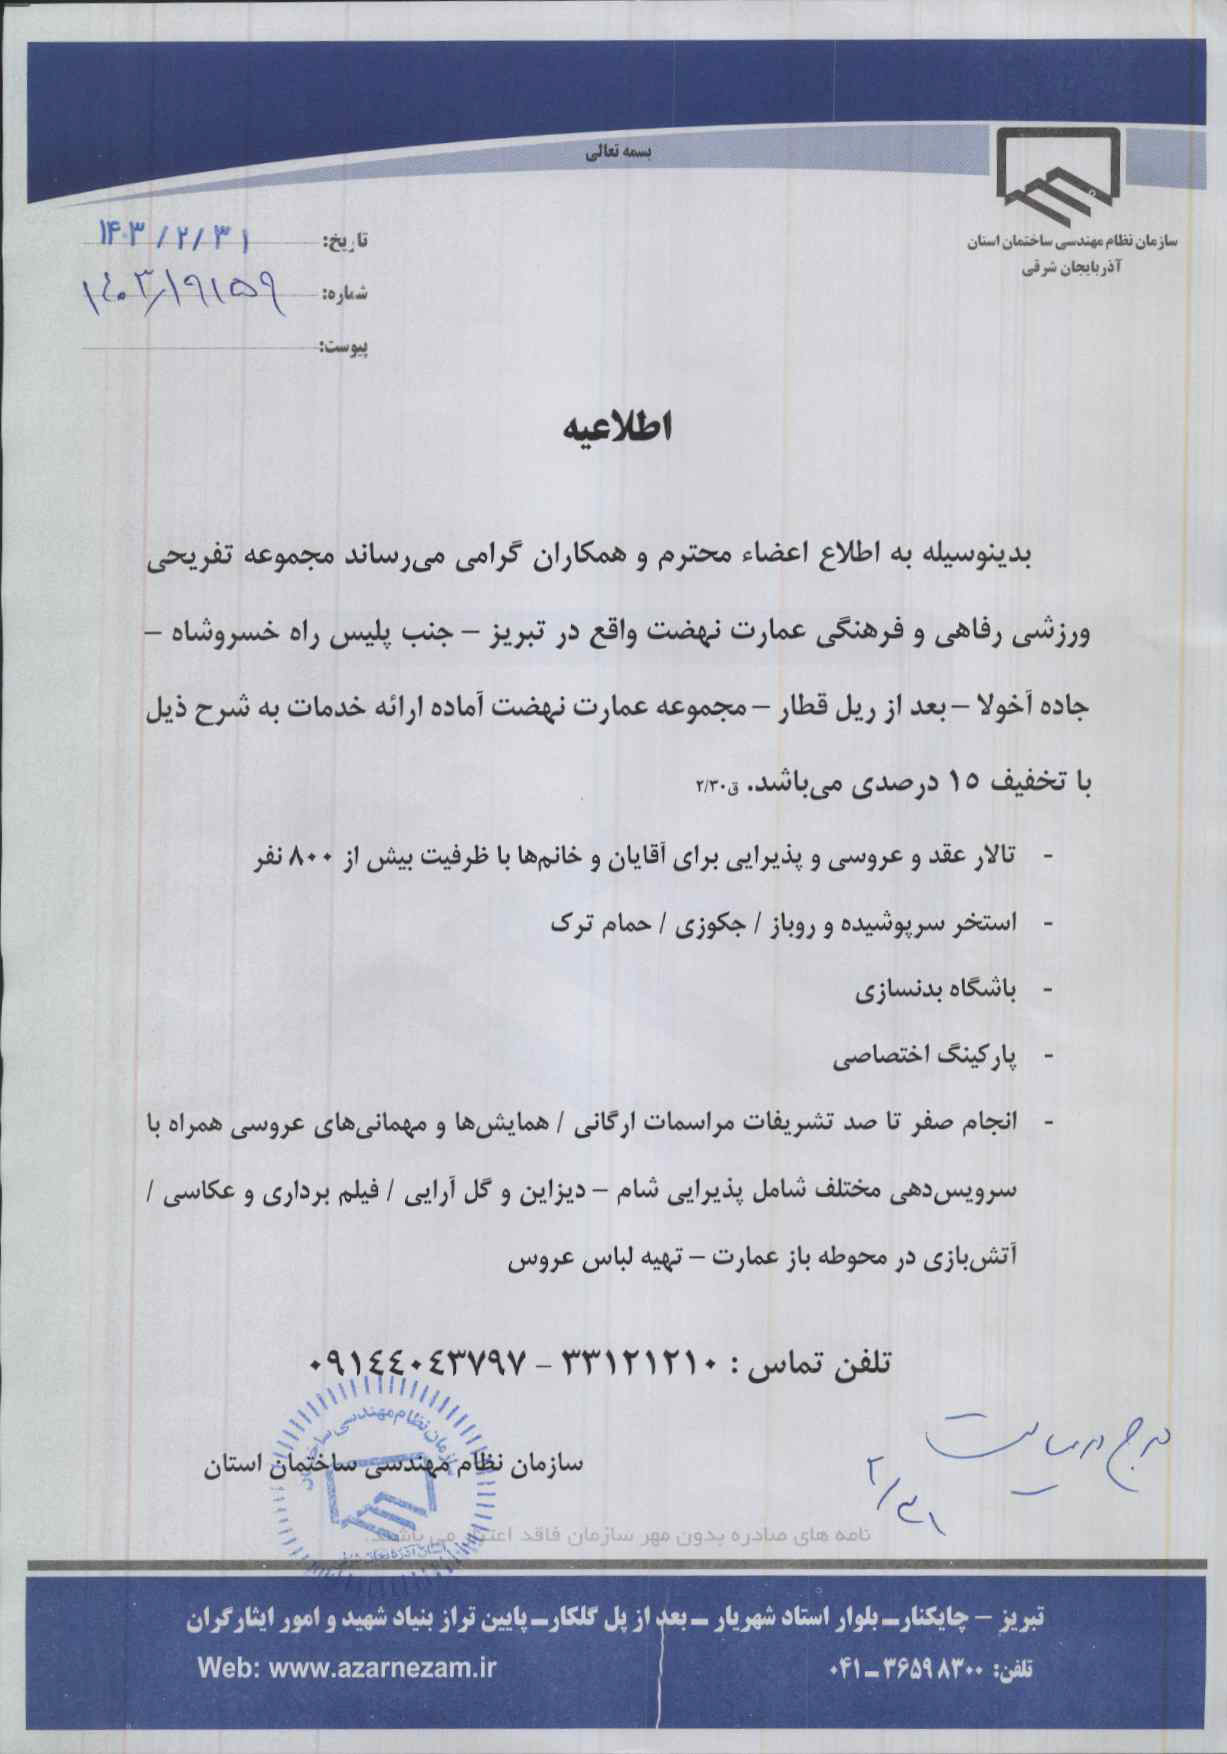 بسمه تعالی
سازمان نظام مهندسی ساختمان استان
آذربایجان شرقی
تاریخ: ۱۴۰۳/۲/۳۱
شماره: ۱۴۰۳/۱۹۱۵۹
پیوست:
اطلاعیه
بدینوسیله به اطلاع اعضاء محترم و همکاران گرامی می‌رساند مجموعه تفریحی
ورزشی رفاهی و فرهنگی عمارت نهضت واقع در تبریز – جنب پلیس راه خسروشاه –
جاده آخولا – بعد از ریل قطار – مجموعه عمارت نهضت آماده ارائه خدمات به شرح ذیل
با تخفیف ۱۵ درصدی می‌باشد. ق۲/۳۰
- تالار عقد و عروسی و پذیرایی برای آقایان و خانم‌ها با ظرفیت بیش از ۸۰۰ نفر
- استخر سرپوشیده و روباز / جکوزی / حمام ترک
- باشگاه بدنسازی
- پارکینگ اختصاصی
- انجام صفر تا صد تشریفات مراسمات ارگانی / همایش‌ها و مهمانی‌های عروسی همراه با
سرویس‌دهی مختلف شامل پذیرایی شام – دیزاین و گل آرایی / فیلم برداری و عکاسی /
آتش‌بازی در محوطه باز عمارت – تهیه لباس عروس
تلفن تماس : ۳۳۱۲۱۲۱۰ – ۰۹۱۴۴۰۴۳۷۹۷
درج در سایت
۲/۳۱
سازمان نظام مهندسی ساختمان استان
سازمان نظام مهندسی ساختمان
استان آذربایجان شرقی
نامه های صادره بدون مهر سازمان فاقد اعتبار می باشد.
تبریز – چایکنار – بلوار استاد شهریار – بعد از پل گلکار – پایین تراز بنیاد شهید و امور ایثارگران
تلفن: ۳۶۵۹۸۳۰۰ – ۰۴۱
Web: www.azarnezam.ir